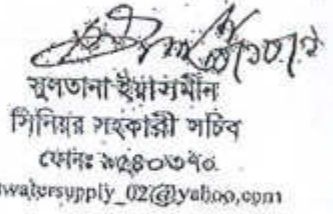 সুলতানা ইয়াসমীন
সিনিয়র সহকারী সচিব
ফোনঃ ৯৫৪০৩৭০
watersupply_02@yahoo.com